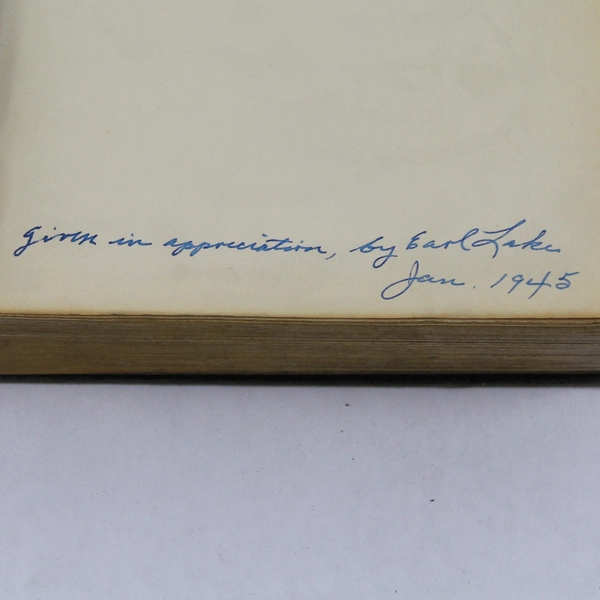 given in appreciation, by Earl Lake
Jan. 1945